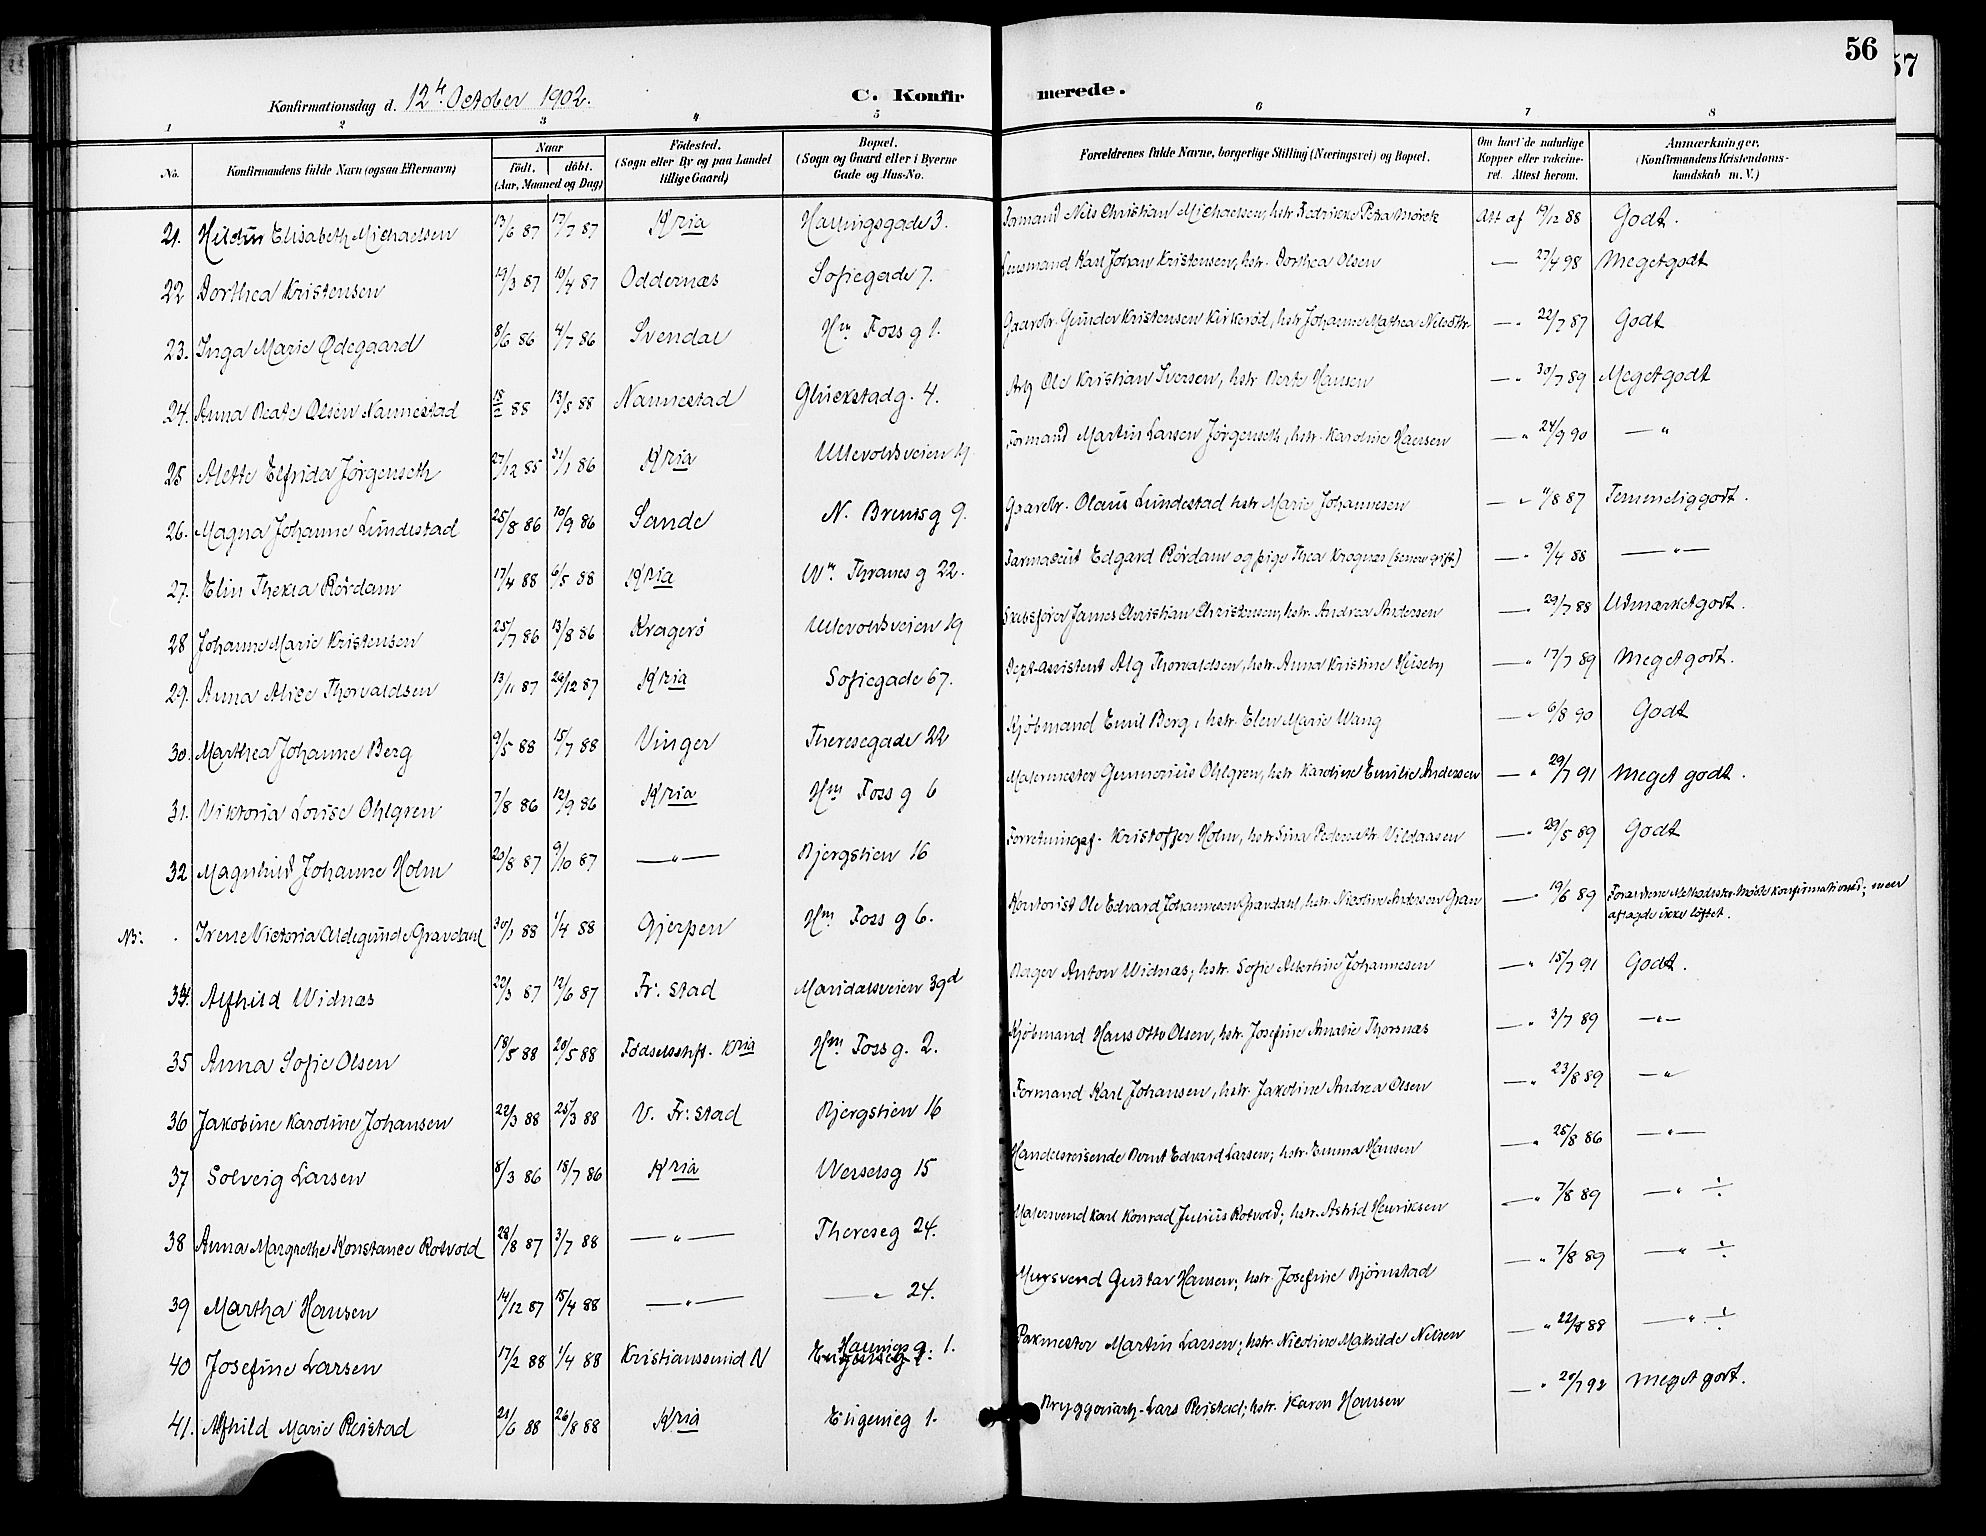 56
57
Konfirmationsdag d. 12te October 1902.
C. Konfirmerede.
1 2 3 4 5 6 7 8
No.
Konfirmandens fulde Navn (ogsaa Efternavn)
Naar
født. døbt.
(Aar, Maaned og Dag)
Fødested.
(Sogn eller By og paa Landet
tillige Gaard)
Bopæl.
(Sogn og Gaard eller i Byerne
Gade og Hus-No.
Forældrenes fulde Navne, borgerlige Stilling (Næringsvei) og Bopæl.
Om havt de naturlige
Kopper eller vakcine-
ret. Attest herom.
Anmærkninger.
(Konfirmandens Kristendoms-
kundskab m. V.)
21. Hildur Elisabeth Michaelsen 13/6 87 17/7 87 Kria Haungsgade 3. Formand Nils Christian Michaelsen, hstr. Fredrikke Petra Mörck Att af 19/12 88 Godt.
22 Dorthea Kristensen 19/3 87 10/4 87 Oddernæs Sofiegade 7. Lensmand Karl Johan Kristensen, hstr. Dorthea Olsen — 27/4 98 Megetgodt
23. Inga Marie Ødegaard 8/6 86 4/7 86 Svendal Hm Foss g 1. Gaardbr. Gunder Kristensen Kirkerød, hstr Johanne Mathea Nilsdtr — " 22/7 87 Godt
24. Anna Beate Olsen Nannestad 88 13/5 88 Nannestad Glückstadg. 4. Arb Ole Kristian Iversen, hstr Berte Hansen — " 30/7 89 Megetgodt
25 Alette Elfrida Jørgenseth 27/12 85 31/1 86 Kria Ullevoldsveien 11 Formand Martin Larsen Jørgenseth, hstr. Karoline Hansen — " 24/9 90 — "
26. Magna Johanne Lundestad 25/8 86 10/9 86 Sande N. Brunsg 9. Gaardbr. Olaus Lundestad hstr Marie Johannesen — " 11/8 87 Temmeliggodt.
27. Elin Thekla Rørdam 17/4 88 6/5 88 Kria Wm. Thranes g 22. Farmaceut Edgard Rørdam og pige Thea Kragnæs (senere gift) — " 9/4 88 — " —
28 Johanne Marie Kristensen 25/7 86 13/8 86 Kragerø Ullevoldsveien 19 Skibsfører James Christian Christensen, hstr. Andrea Andersen — " 29/7 88 Udmærketgodt.
29. Anna Alice Thorvaldsen 13/11 87 26/12 87 Kria Sofiegade 67. Dept.assistent Alg Thorvaldsen, hstr. Anna Kristine Huseby — " 17/7 89 Megetgodt.
30. Marthea Johanne Berg 9/5 88 15/7 88 Vinger Theresegade 22 Kjøbmand Emil Berg, hstr. Elen Marie Wang — " 6/8 90 Godt
31. Viktoria Lovise Ohlgren 7/8 86 12/9 86 Kria Hm Foss g 6 Malermester Gunnerius Ohlgren, hstr Karoline Emilie Andersen — " 29/7 91 Meget godt.
32 Magnhild Johanne Holm 20/8 87 9/10 87 — " — Bjergstien 16 Forretningsf. Kristoffer Holm, hstr Sina Pedersdtr. Vildaasen — " 29/5 89 Godt
Nb: . Irene Victoria Aldegunde Gravdahl 30/1 88 1/4 88 Gjerpen Hm Foss g 6. Kontorist Ole Edvard Johannesen Gravdahl, hstr. Nicoline Andersen Gran — " 19/6 89 Forældrene Methodister. Mødte Konfirmationsd; men
aflagde ikke löftet.
34. Alfhild Widnæs 22/3 87 12/6 87 Fr. stad Maridalsveien 39d Bager Anton Widnæs; hstr. Sofie Albertine Johannesen — " 15/7 91 Godt.
35 Anna Sofie Olsen 18/5 88 20/5 88 Fødselsstift. Kria Hm Foss g. 2. Kjøbmand Hans Otto Olsen, hstr. Josefine Amalie Thorsnæs — " 3/7 89 — " —
36 Jakobine Karoline Johansen 22/3 88 25/3 88 V. Fr: stad Bjergstien 16 Formand Karl Johansen, hstr. Jakobine Andrea Olsen — " 23/8 89 — "
37 Solveig Larsen 8/3 86 18/7 86 Kria Wesselsg 15 Handelsreisende Bernt Edvard Larsen; hstr. Emma Hansen — " 25/8 86 — " —
38 Anna Margrethe Konstance Rotvold 28/8 87 3/7 88 — " — Thereseg 24. Malersvend Karl Konrad Julius Rotvold; hstr. Astrid Henriksen — " 7/8 89 — " ÷
39 Martha Hansen 14/12 87 15/4 88 — " — — " 24. Mursvend Gustav Hansen; hstr. Josefine Bjørnstad — " 7/8 89 — " ÷
40 Josefine Larsen 17/2 88 1/4 88 Kristianssund N Haunigs g. 1. Pakmester Martin Larsen; hstr. Nicoline Mathilde Nilsen — " 22/8 88 — " ÷
41. Alfhild Marie Reistad 21/6 88 26/8 88 Kria Eugenieg 1. Bryggeriarb. Lars Reistad; hstr. Karen Hansen — " 20/7 92 Meget godt.